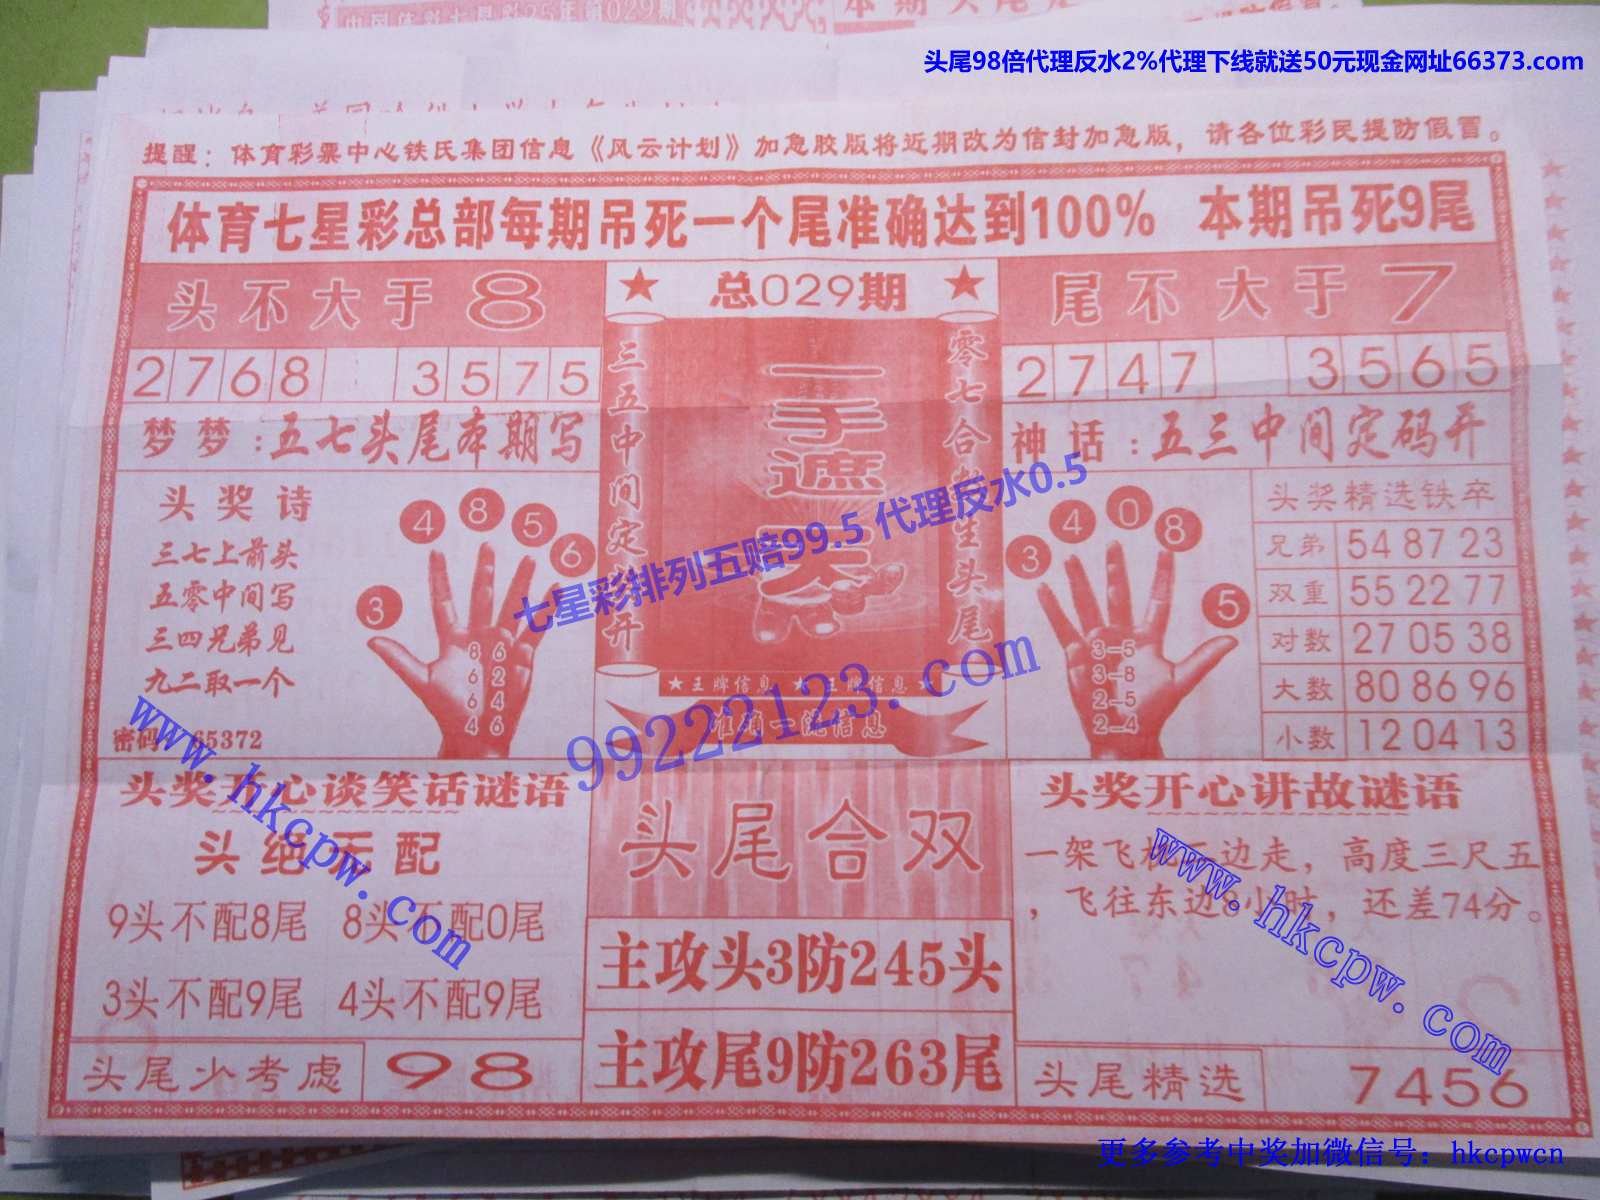 中国体彩七星彩25年第029期
头尾98倍代理反水2%代理下线就送50元现金网址66373.com
提醒：体育彩票中心铁氏集团信息《风云计划》加急胶版将近期改为信封加急版，请各位彩民提防假冒。
体育七星彩总部每期吊死一个尾准确达到100% 本期吊死9尾
头不大于8
★ 总029期 ★
尾不大于7
2768 3575
2747 3565
梦梦：五七头尾本期写
神话：五三中间定码开
三五中间定 开
一手遮天
零七合 生头尾
头奖诗
三七上前头
五零中间写
三四兄弟见
九二取一个
密码 65372
3 4 8 5 6
8 6
6 2
6 4
4 6
3 4 0 8 5
3-5
3-8
2-5
2-4
头奖精选铁卒
兄弟 54 87 23
双重 55 22 77
对数 27 05 38
大数 80 86 96
小数 12 04 13
★王牌信息 ★王牌信息★
准确一流信息
七星彩排列五赔99.5 代理反水0.5
99222123.com
www.hkcpw.com
头奖开心谈笑话谜语
头绝无配
9头不配8尾 8头不配0尾
3头不配9尾 4头不配9尾
头尾少考虑 98
头尾合双
主攻头3防245头
主攻尾9防263尾
头奖开心讲故谜语
一架飞机 边走，高度三尺五
，飞往东边8小时，还差74分。
www.hkcpw.com
头尾精选 7456
更多参考中奖加微信号：hkcpwcn